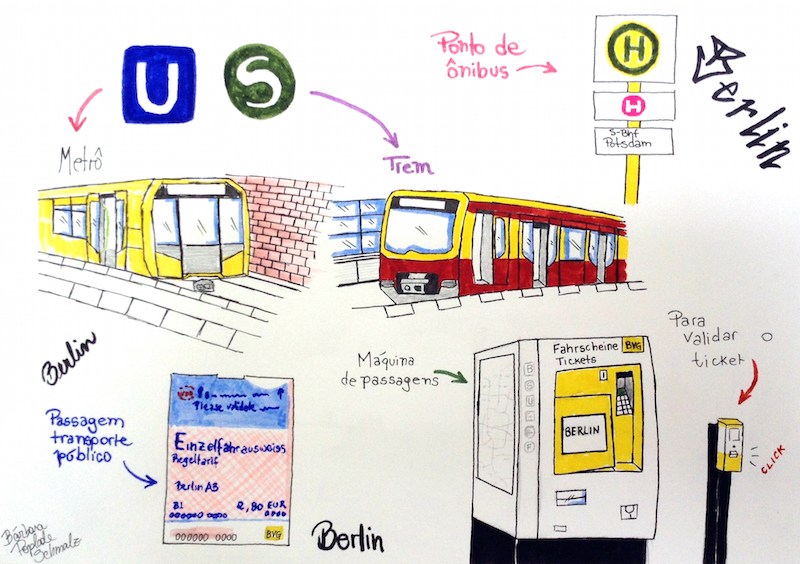 U
S
Ponto de
ônibus
H
H
S-Bhf
Potsdam
Berlin
Metrô
Trem
Berlin
Passagem
transporte
público
Please validate
Einzelfahrausweiss
Regeltarif
Berlin AB
2,80 EUR
000000 0000
BVG
Máquina
de passagens
Fahrscheine
Tickets
BVG
BERLIN
Para
validar o
ticket
CLICK
Berlin
Bárbara
Poplade
Schmalz